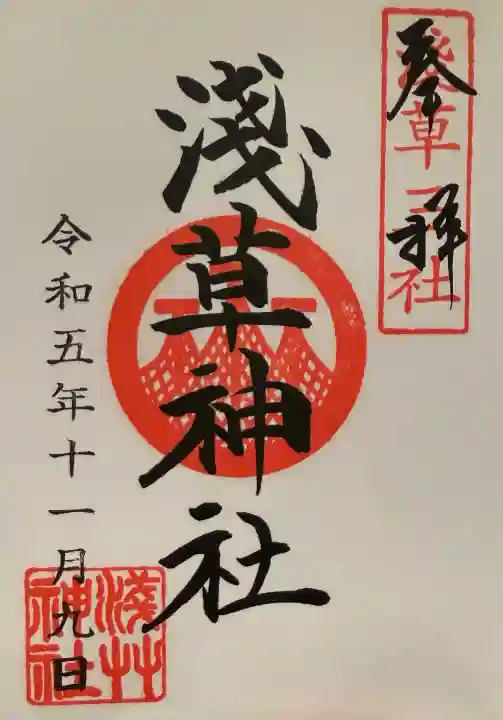 奉拝
淺草三社
淺草神社
令和五年十一月九日
淺草神社